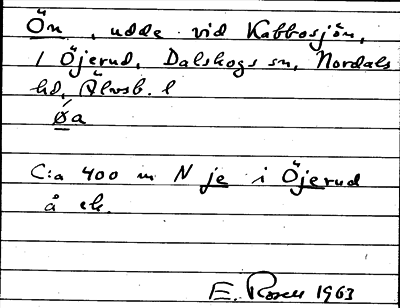 Ön, udde vid Kabbosjön,
i Öjerud, Dalskogs sn, Nordals
hd, Älvsb. l
Øa
C:a 400 m N je i Öjerud
å ek.
E. Rosell 1963